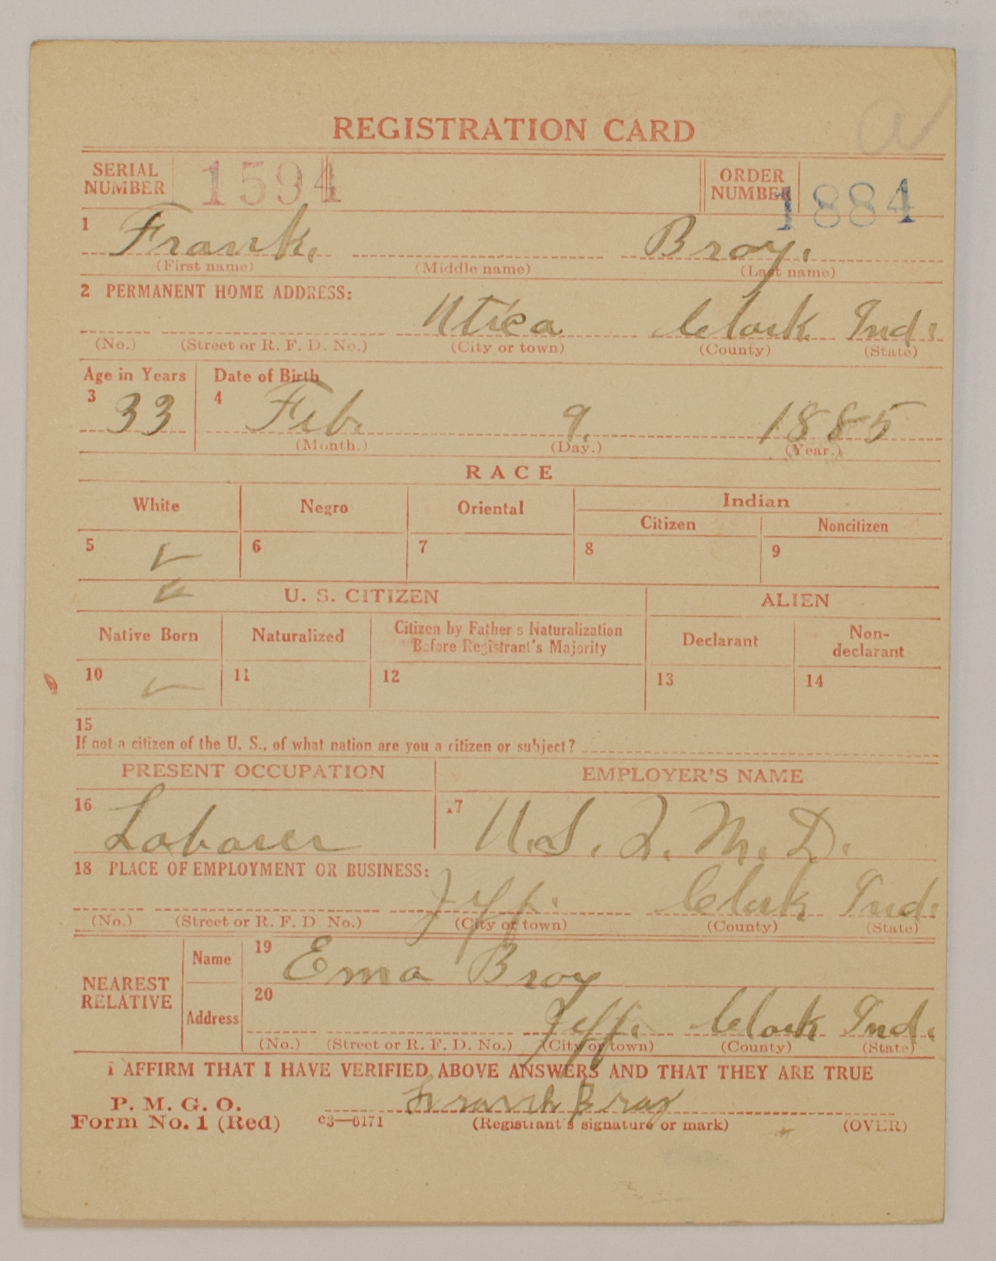 REGISTRATION CARD
SERIAL NUMBER 1594 ORDER NUMBER 1884
1 Frank. Broy.
(First name) (Middle name) (Last name)
2 PERMANENT HOME ADDRESS:
Utica Clark Ind.
(No.) (Street or R. F. D. No.) (City or town) (County) (State)
Age in Years Date of Birth
3 33 4 Feb. 9. 1885
(Month.) (Day.) (Year.)
RACE
White Negro Oriental Indian
Citizen Noncitizen
5 6 7 8 9
U. S. CITIZEN ALIEN
Native Born Naturalized Citizen by Father's Naturalization Before Registrant's Majority Declarant Non-declarant
10 11 12 13 14
15
If not a citizen of the U. S., of what nation are you a citizen or subject?
PRESENT OCCUPATION EMPLOYER'S NAME
16 Laborer 17 U.S. Q. M. D.
18 PLACE OF EMPLOYMENT OR BUSINESS:
Jeff. Clark Ind.
(No.) (Street or R. F. D No.) (City or town) (County) (State)
NEAREST RELATIVE
Name 19 Ema Broy
Address 20 Jeff. Clark Ind.
(No.) (Street or R. F. D. No.) (City or town) (County) (State)
I AFFIRM THAT I HAVE VERIFIED ABOVE ANSWERS AND THAT THEY ARE TRUE
P. M. G. O. Frank Broy
Form No. 1 (Red) 03—6171 (Registrant's signature or mark) (OVER)